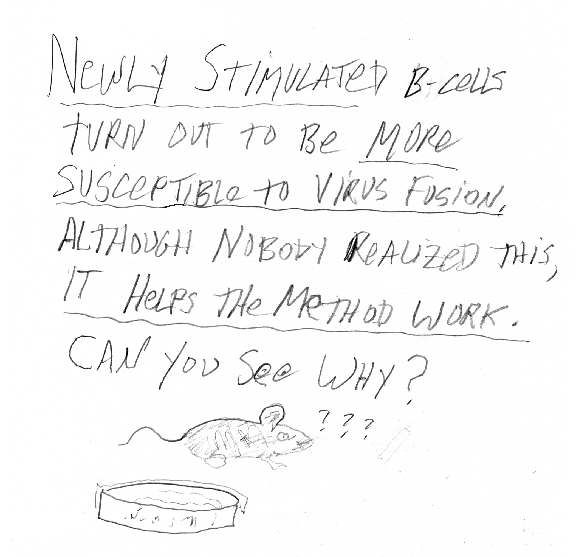 NEWLY STIMULATED B-CELLS
TURN OUT TO Be MORe
SUSCEPTIBLe TO VIRUS FUSION.
ALTHOUGH NOBODY REALIZED THIS,
IT HELPS THE METHOD WORK.
CAN YOU See WHY?
???